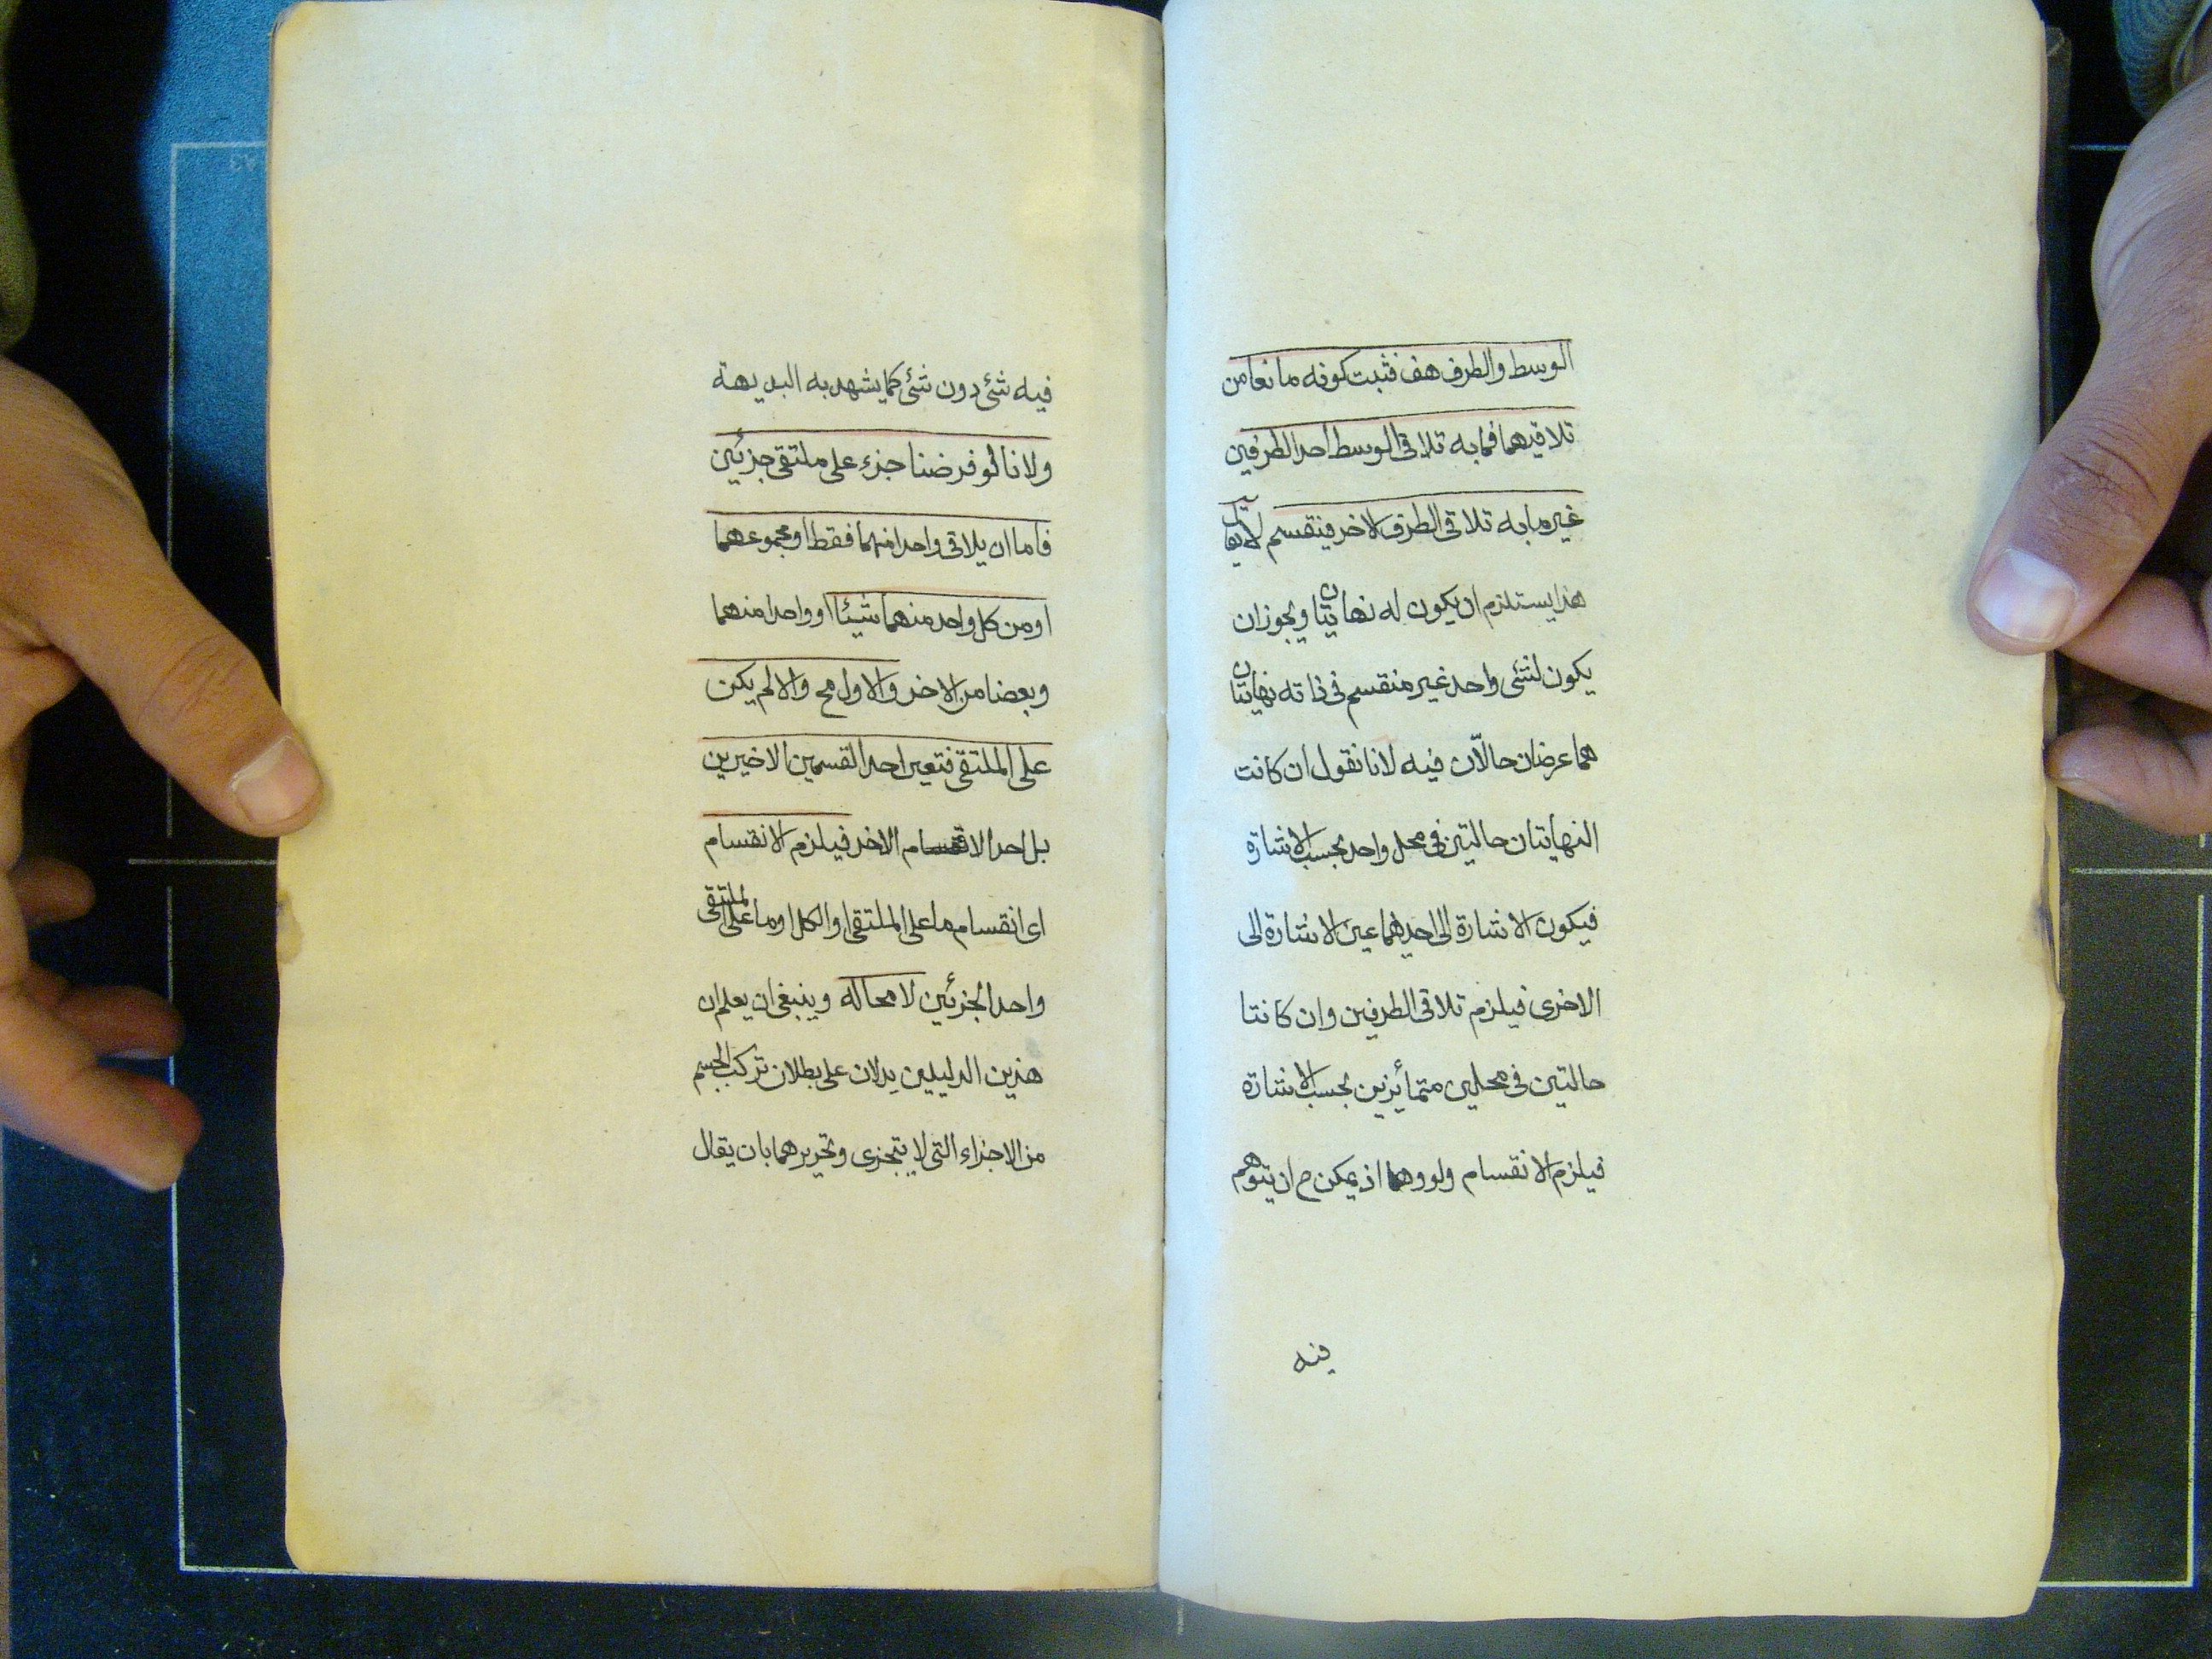 الوسط والطرف هف فثبت كونه مانعا من
تلاقيهما فما به تلاقى الوسط احد الطرفين
غير ما به تلاقى الطرف الاخر فينقسم لا يقال
هذا يستلزم ان يكون له نهايتان ويجوز ان
يكون لشئ واحد غير منقسم فى ذاته نهايتان
هما عرضان حالّان فيه لانا نقول ان كانت
النهايتان حالتين فى محل واحد بحسب الاشارة
فيكون الاشارة الى احديهما عين الاشارة الى
الاخرى فيلزم تلاقى الطرفين وان كانتا
حالتين فى محلين متمائزين بحسب الاشارة
فيلزم الانقسام ولو وهما اذ يمكن ح ان يتوهم
فيه
فيه شئ دون شئ كما يشهد به البديهة
ولانا لو فرضنا جزء على ملتقى جزئين
فاما ان يلاقى واحدا منهما فقط او مجموعهما
او من كل واحد منهما شيئا او واحدا منهما
وبعضا من الاخر والاول مح والا لم يكن
على الملتقى فتعين احد القسمين الاخيرين
بل احد الاقسام الاخر فيلزم الانقسام
اى انقسام ما على الملتقى او الكل او ما على الملتقى
واحد الجزئين لا محالة وينبغى ان يعلم ان
هذين الدليلين يدلان على بطلان تركب الجسم
من الاجزاء التى لا يتجزى وتحريرهما بان يقال